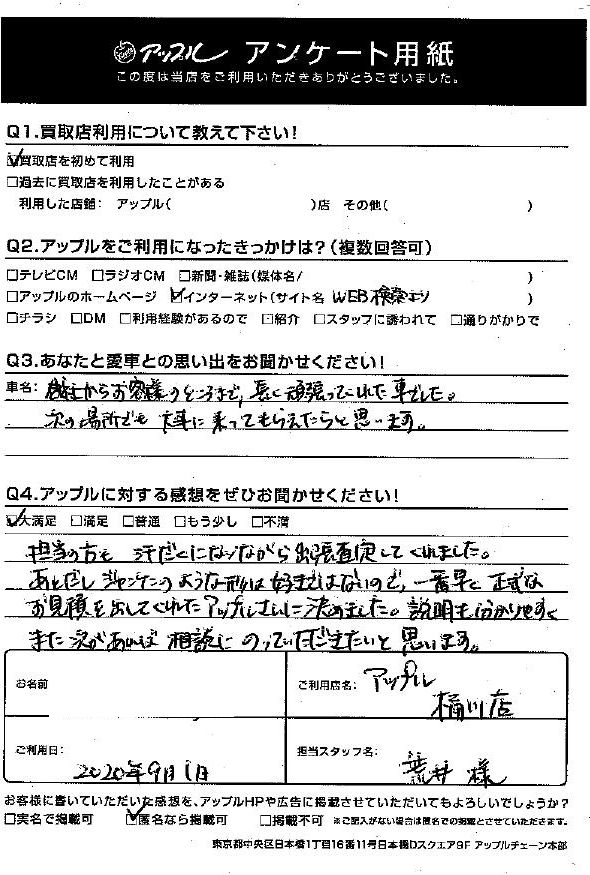 アップル アンケート用紙
この度は当店をご利用いただきありがとうございました。
Q1.買取店利用について教えて下さい！
☑買取店を初めて利用
□過去に買取店を利用したことがある
利用した店舗： アップル（ ）店 その他（ ）
Q2.アップルをご利用になったきっかけは？（複数回答可）
□テレビCM □ラジオCM □新聞・雑誌（媒体名/ ）
□アップルのホームページ ☑インターネット（サイト名 WEB検索より ）
□チラシ □DM □利用経験があるので □紹介 □スタッフに誘われて □通りがかりで
Q3.あなたと愛車との思い出をお聞かせください！
車名： 会社からお客様のところまで、長く頑張ってくれた車でした。
次の場所でも大事に乗ってもらえたらと思います。
Q4.アップルに対する感想をぜひお聞かせください！
☑大満足 □満足 □普通 □もう少し □不満
担当の方も 汗だくになりながら出張査定してくれました。
あとだしジャンケンのような形は好きではないので、一番早く正式な
お見積を出してくれたアップルさんに決めました。説明も分かりやすく
また次があれば 相談に のっていただきたいと思います。
お名前
ご利用店名： アップル
桶川店
ご利用日：
2020年9月1日
担当スタッフ名：
荒井 様
お客様に書いていただいた感想を、アップルHPや広告に掲載させていただいてもよろしいでしょうか？
□実名で掲載可 ☑匿名なら掲載可 □掲載不可 ※ご記入がない場合は匿名での掲載とさせていただきます。
東京都中央区日本橋1丁目16番11号日本橋Dスクエア9F アップルチェーン本部